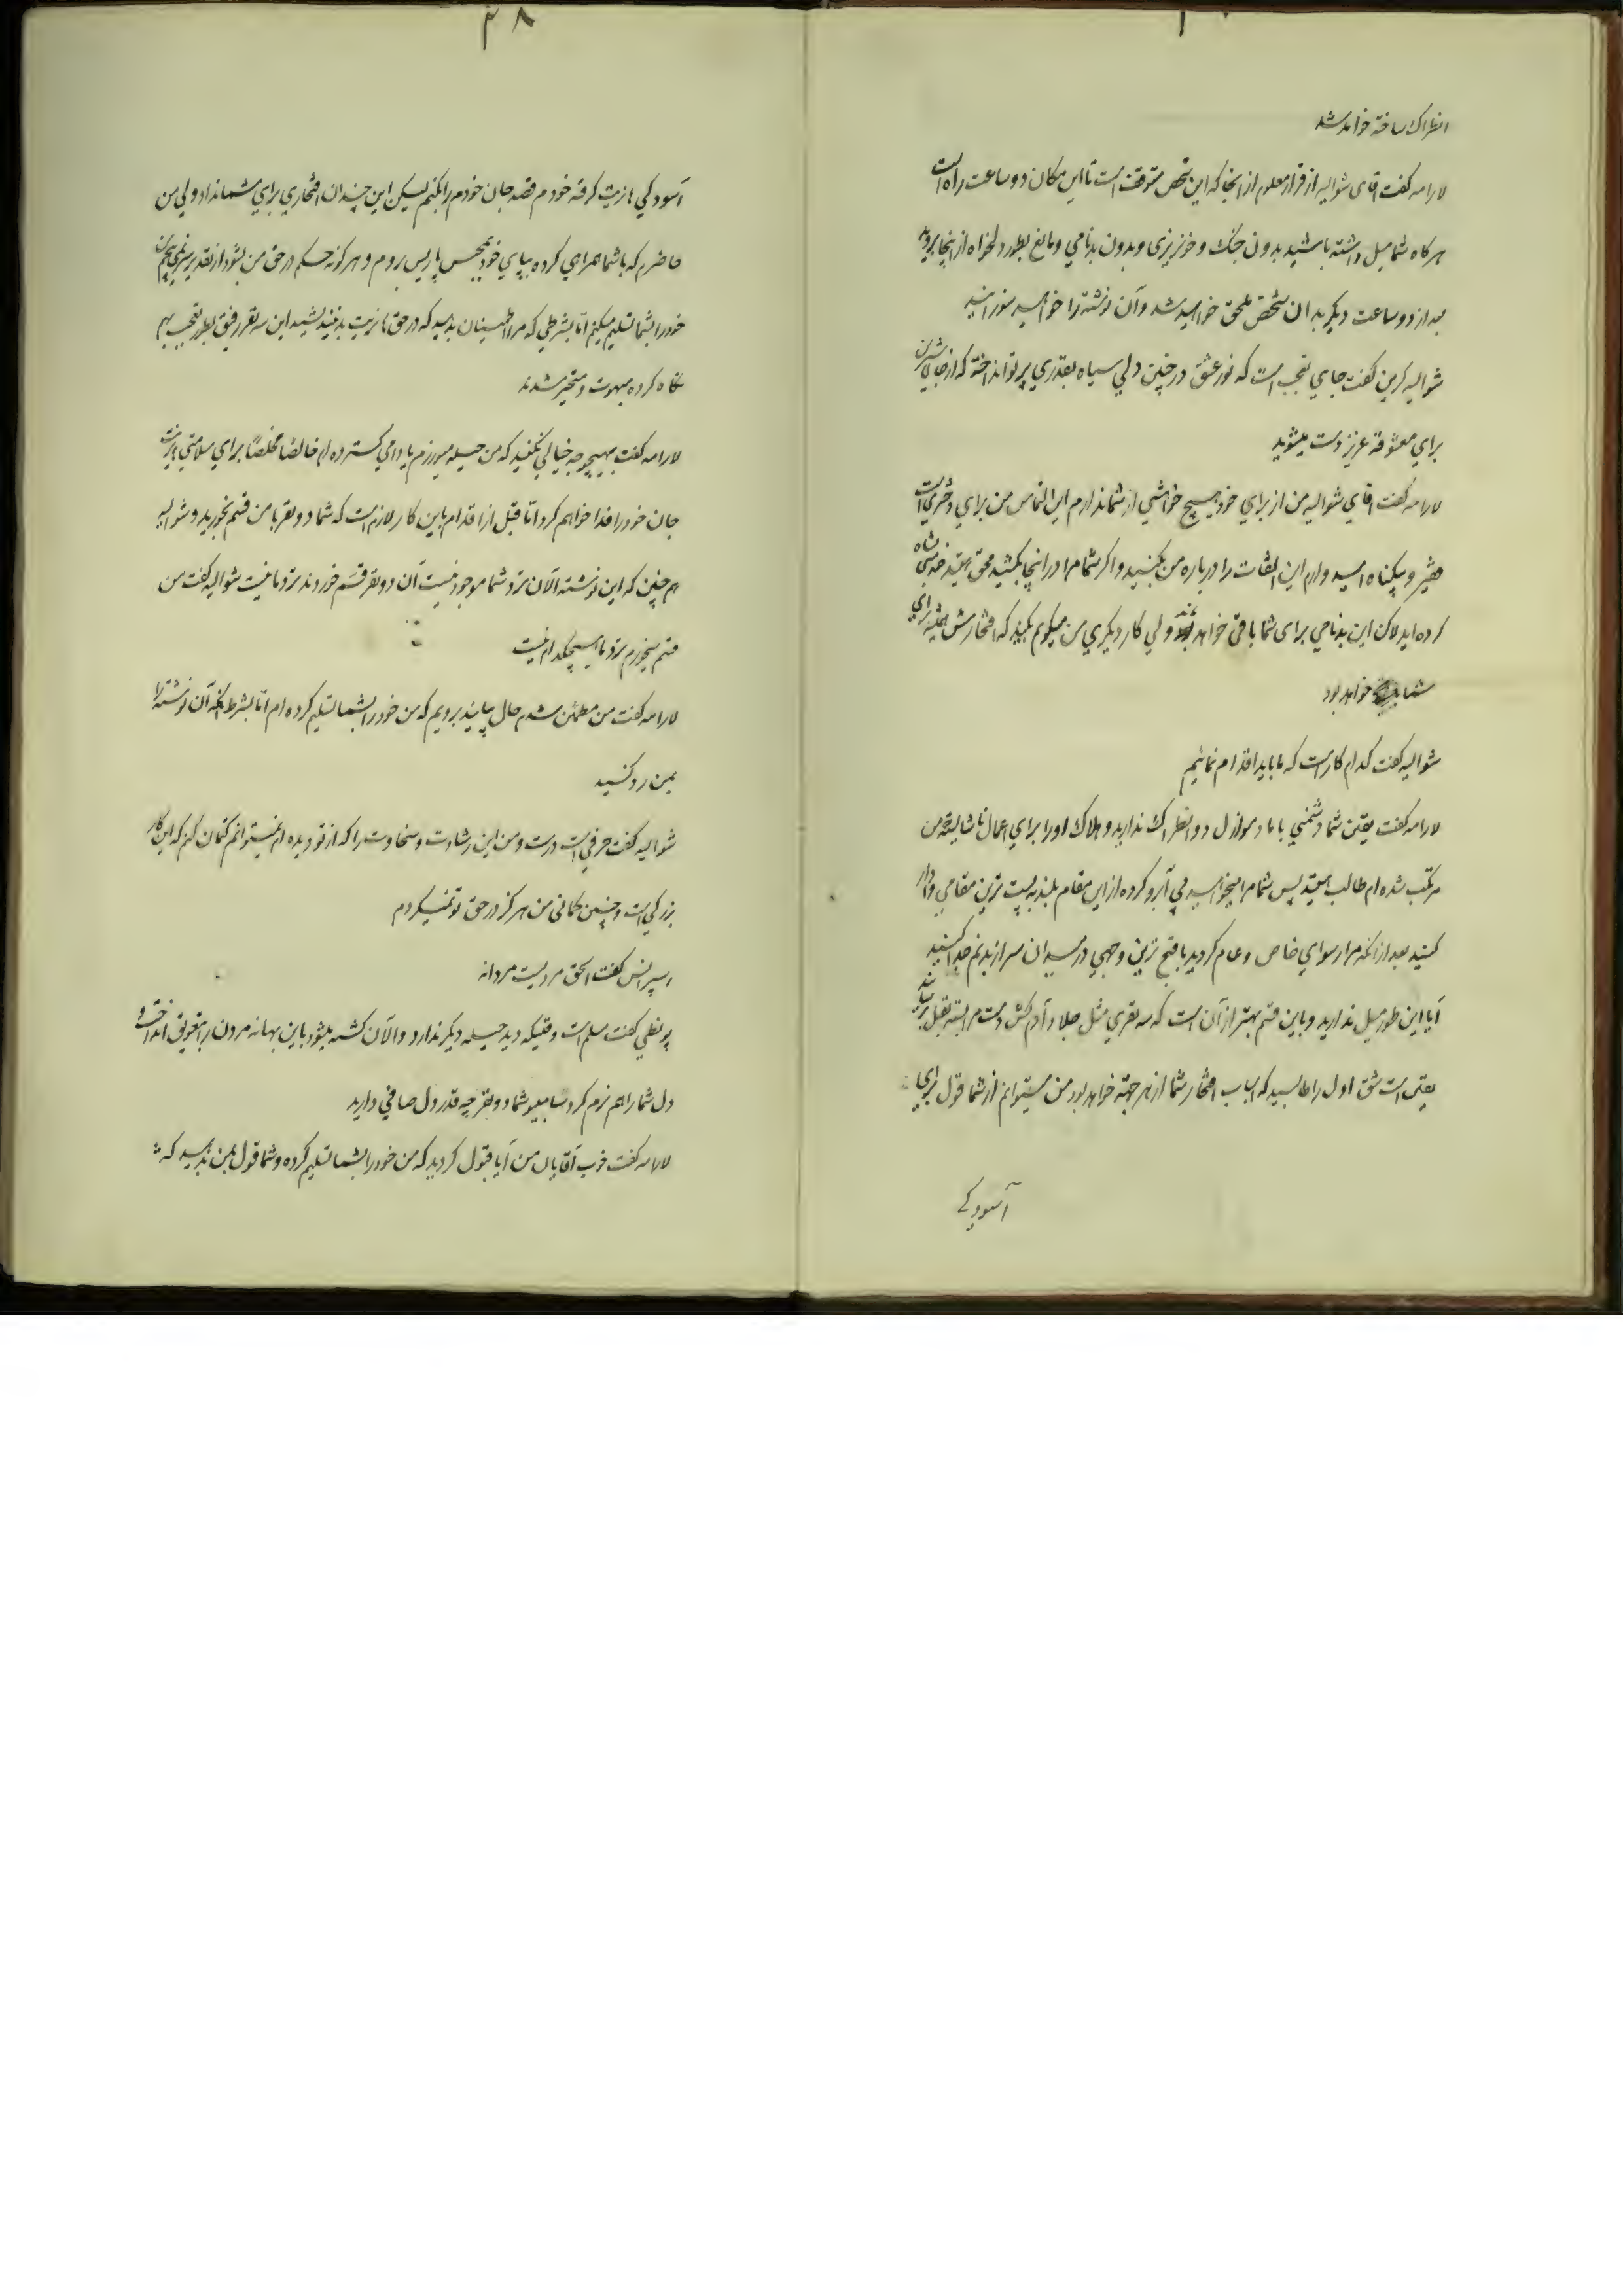 انطراک ساخته خواهد شد
لارامه کفت اقای شوالیه از قرار معلوم از انجا که این شخص متوقف است تا این مکان دو ساعت راه است
هرکاه شما میل داشته باشید بدون جنک و خونریزی و بدون بدنامی و مانع بطور دلخواه از اینجا بروید
بعد از دو ساعت دیکر بدان شخص ملحق خواهید شد و آن نوشته را خواهید سوزانید
شوالیه کرمن کفت جای تعجب است که نور عشق در چنین دلی سیاه بقدری پرتو انداخته که از جان شیرین
برای معشوقهٔ عزیز دست میشوید
لارامه کفت اقای شوالیه من از برای خود هیچ خواهشی از شما ندارم این التماس من برای دختری است
و بیکناه امید دارم این التفات را درباره من بکنید و اکر شما مرا در اینجا بکشید محق هستید
کرده اید لاکن این بدنامی برای شما باقی خواهد ولی کار دیکری من میکویم بکنید که افتخارش همیشه برای
شما خواهد بود
شوالیه کفت کدام کار است که ما باید اقدام نمائیم
لارامه کفت یقین شما دشمنی با مادموازل دو انطراک ندارید و هلاک اورا برای اعمال ناشایسته من
مرتکب شده ام طالب نیستید پس شما مرا میخواهید بی آبرو کرده از این مقام بلند به پست ترین مقامی وادار
کنید بعد از انکه مرا رسوای خاص و عام کردید باقبح ترین وجهی در میدان سر از بدنم جدا کنید
آیا این طور میل ندارید و باین قسم بهتر از آن است که سه نفری مثل جلاد و آدم کش دست مرا بسته بقتل برسانید
یقین است شق اول را طالبید که اسباب افتخار شما از هر جهة خواهد بود من میتوانم از شما قول برای
آسودکی
۳۸
آسودکی هانریت کرفته خودم قصد جان خودم را بکنم لیکن این چندان افتخاری برای شما ندارد ولی من
حاضرم که با شما همراهی کرده بپای خود بمحبس پاریس بروم و هر کونه حکم در حق من بشود از تقدیر سر نمی پیچم
خود را بشما تسلیم میکنم امّا بشرطی که مرا اطمینان بدهید که در حق هانریت بد نیندیشید این سه نفر رفیق بطور تعجب بهم
نکاه کرده مبهوت و متحیر شدند
لارامه کفت بهیچوجه خیالی نکنید که من حیله میورزم یا دامی کسترده ام خالصاً مخلصاً برای سلامتی هانریت
جان خود را فدا خواهم کرد امّا قبل از اقدام باین کار لازم است که شما دو نفر با من قسم بخورید و شوالیه
هم چنین که این نوشته الآن نزد شما موجود نیست آن دو نفر قسم خوردند نزد ما نیست شوالیه کفت من
قسم میخورم نزد ما هیچکدام نیست
لارامه کفت من مطمئن شدم حال بیائید برویم که من خود را بشما تسلیم کرده ام امّا بشرط آنکه آن نوشته را
بمن رد کنید
شوالیه کفت حرفی است درست و من این رشادت و سخاوت را که از تو دیده ام نمیتوانم کتمان کنم که این کار
بزرکی است و چنین کمانی من هرکز در حق تو نمیکردم
اسپرانس کفت الحق مردیست مردانه
پونطی کفت مسلم است وقتیکه دید حیله دیکر ندارد و الآن کشته میشود باین بهانه مردن را بتعویق انداخت و
دل شما را هم نرم کرد شما دو نفر چه قدر دل صافی دارید
لارامه کفت خوب آقایان من آیا قبول کردید که من خود را بشما تسلیم کرده و شما قول بمن بدهید که